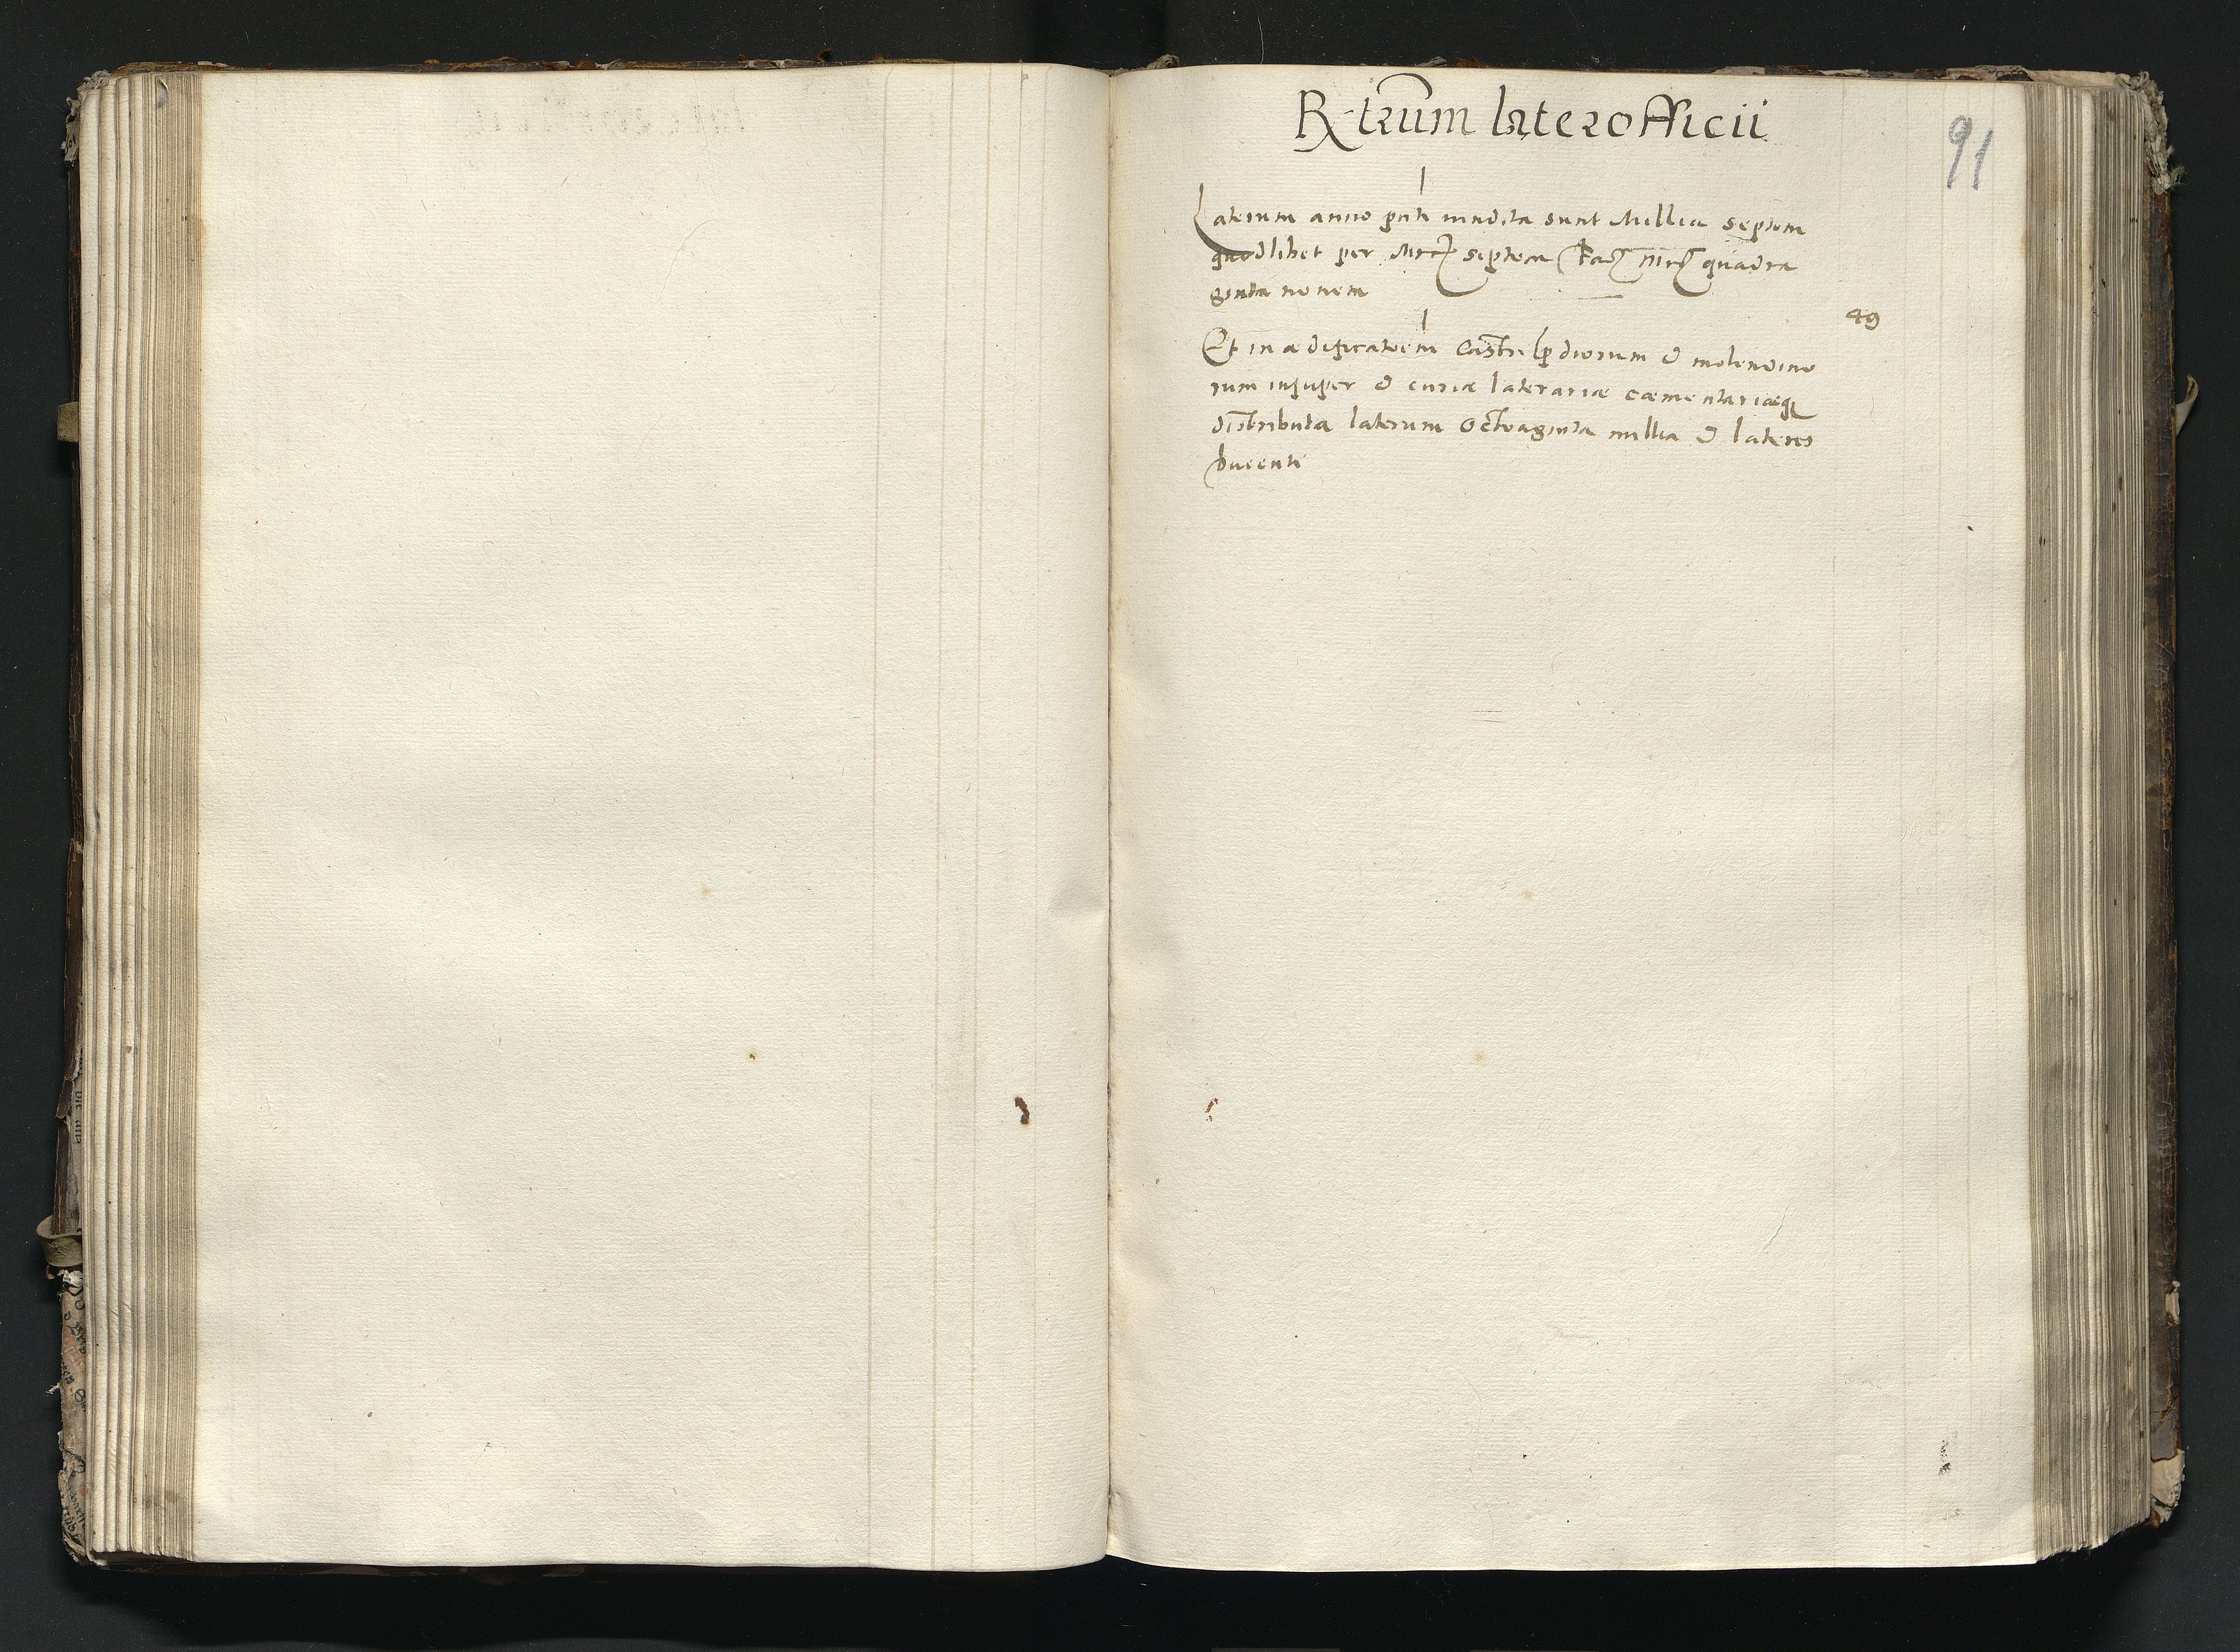 R-trum laterofficii
91
Laterum anno pñti vendita sunt Millia septem
quodlibet per Mrc septem fac mrc quadra
ginta novem
49
Et in ædificatõem Castri prdiorum & molendino
rum insuper & curiæ laterariæ cæmentariæq
distributa laterum octoaginta millia & lateres
ducenti